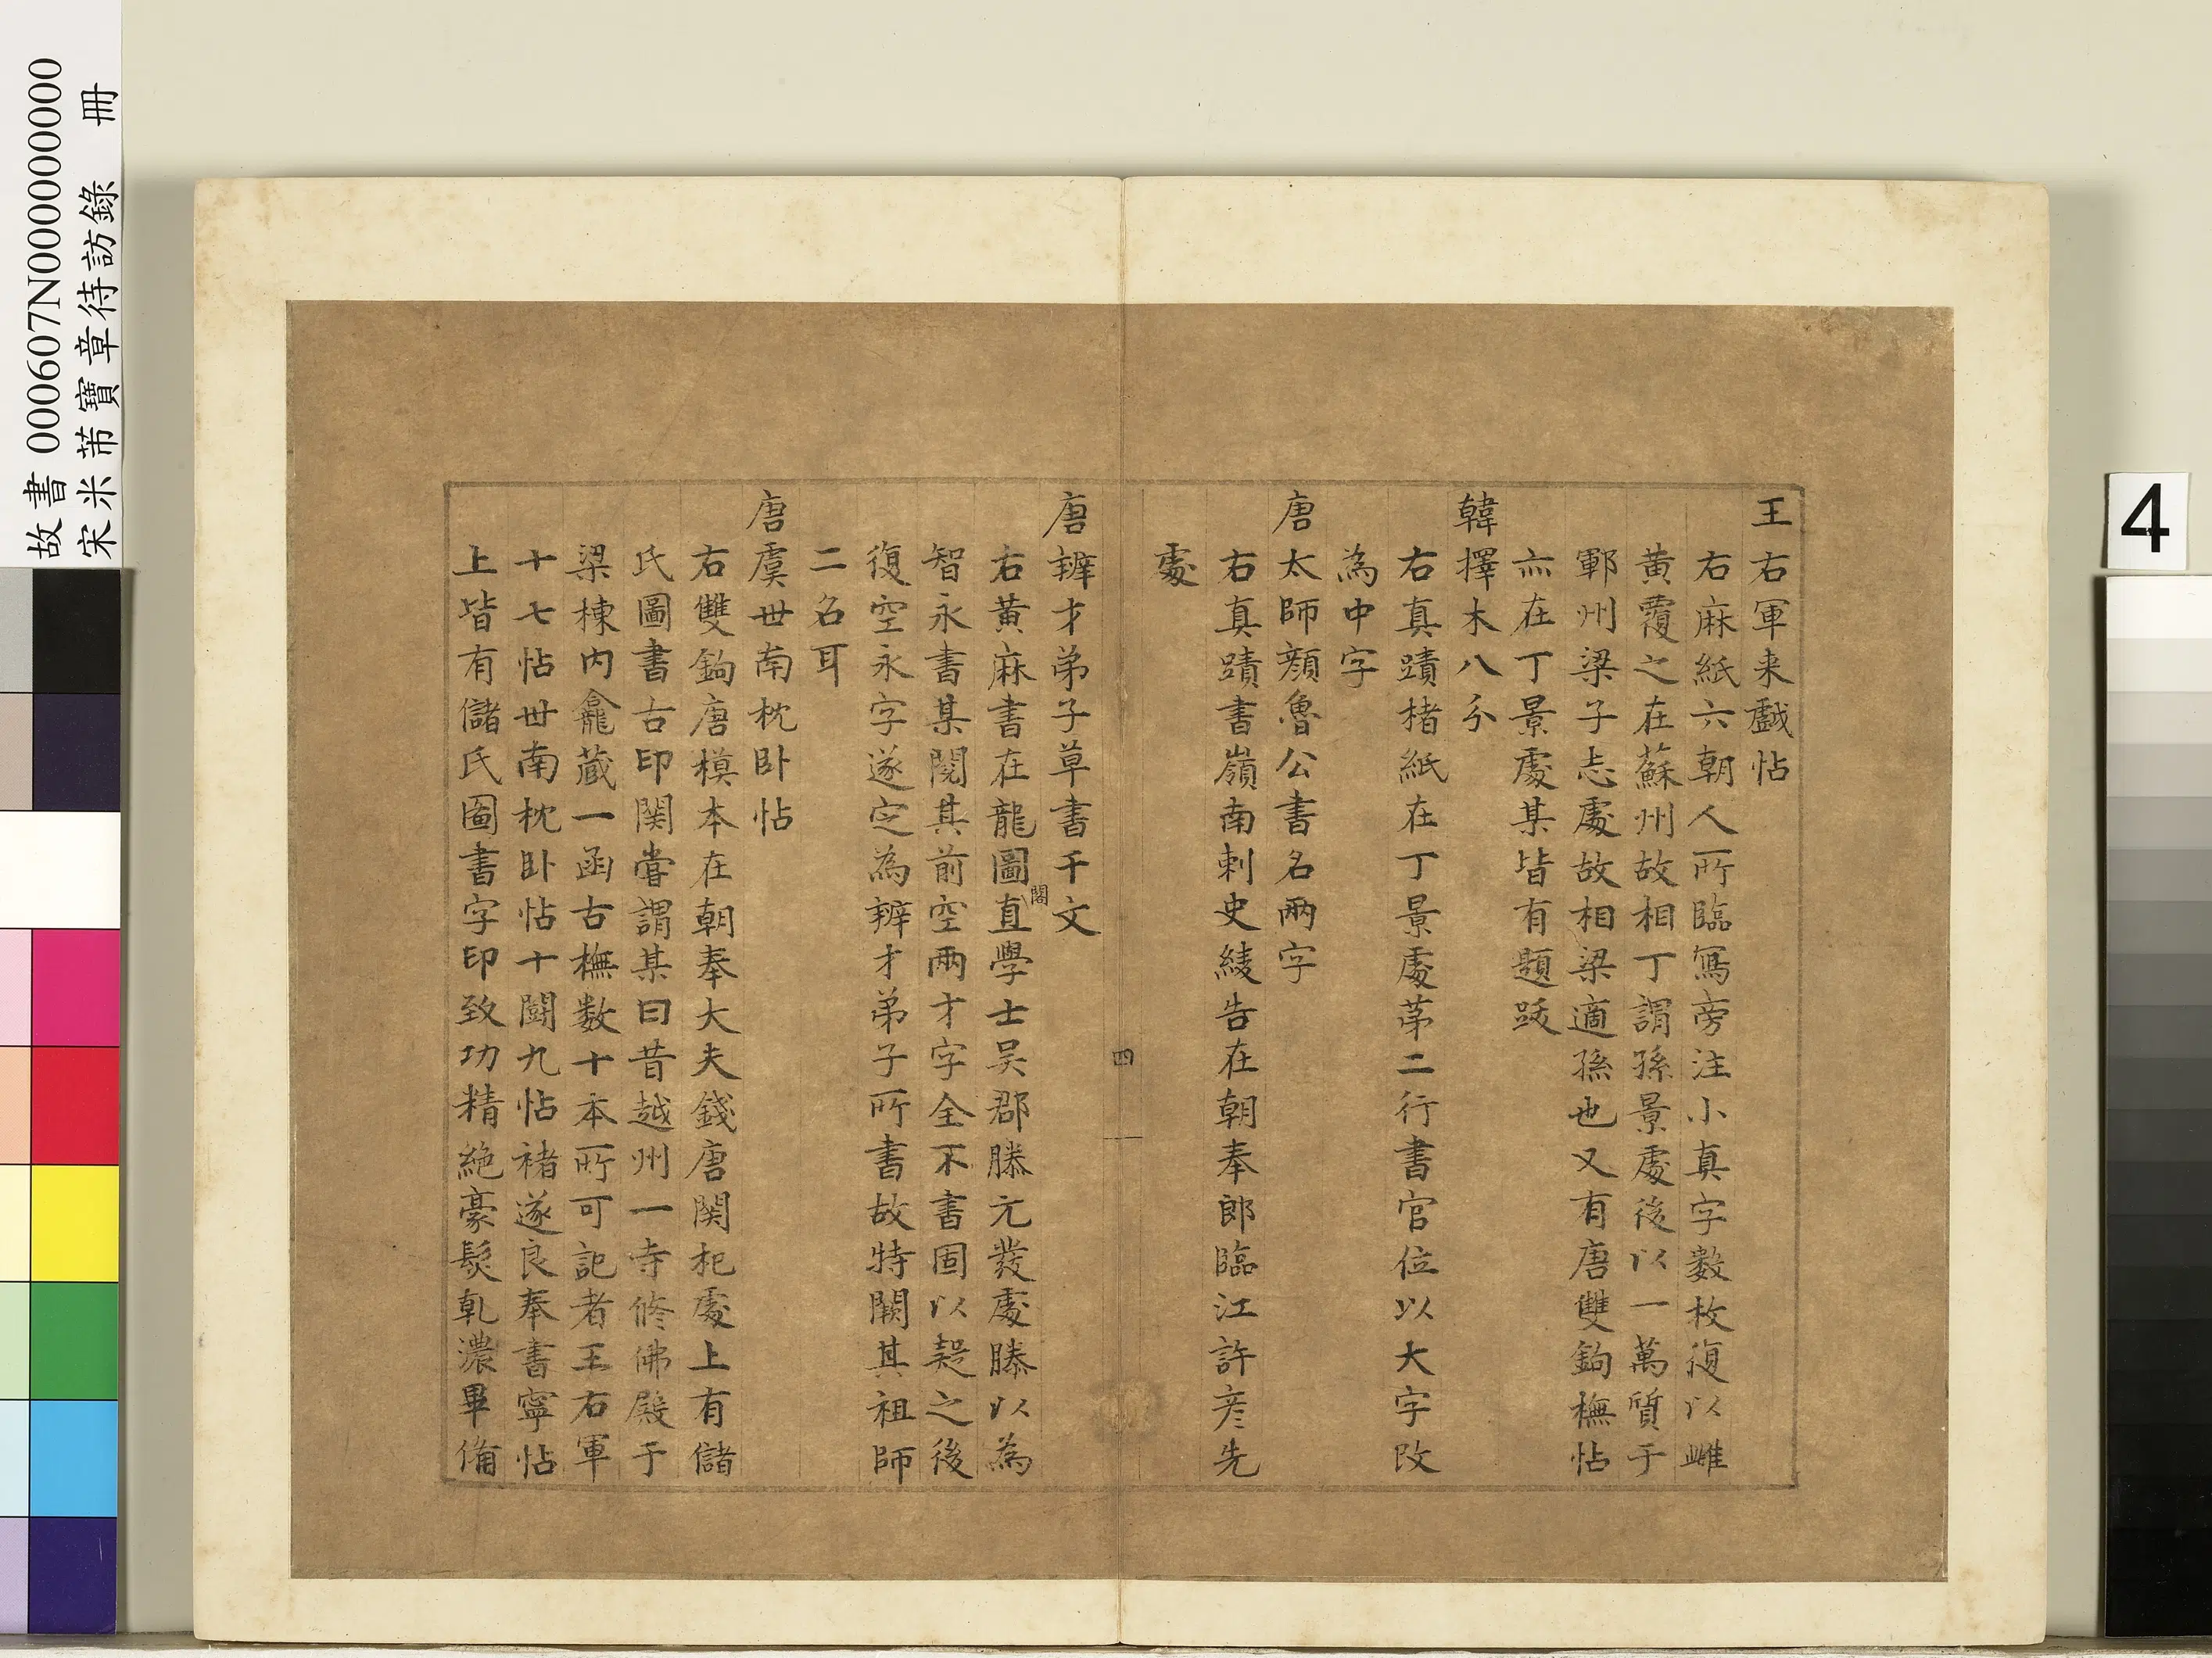 故書 000607N000000000
宋米芾寶章待訪錄 冊
4
王右軍来戲帖
右麻紙六朝人所臨寫旁注小真字數枚復以雌
黃覆之在蘇州故相丁謂孫景處後以一萬質于
鄆州梁子志處故相梁適孫也又有唐雙鉤橅帖
亦在丁景處某皆有題跋
韓擇木八分
右真蹟楮紙在丁景處苐二行書官位以大字改
為中字
唐太師顏魯公書名兩字
右真蹟書嶺南刺史綾告在朝奉郎臨江許彥先
處
四
唐辯才弟子草書千文
右黃麻書在龍圖閣直學士吴郡滕元發處滕以為
智永書某閱其前空兩才字全不書固以疑之後
復空永字遂定為辯才弟子所書故特闕其祖師
二名耳
唐虞世南枕卧帖
右雙鉤唐模本在朝奉大夫錢唐関杞處上有儲
氏圖書古印関嘗謂某曰昔越州一寺修佛殿于
梁棟内龕藏一函古橅数十本所可記者王右軍
十七帖世南枕卧帖十鬭九帖褚遂良奉書寧帖
上皆有儲氏圖書字印致功精絶豪髮乹濃畢備